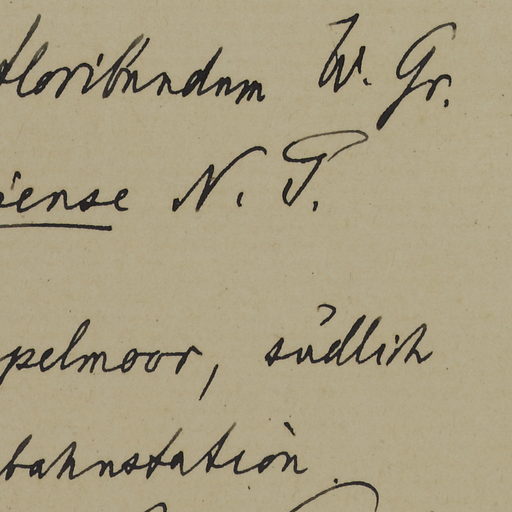 floribundum W. Gr.
iense N. P.
pelmoor, südlich
bahnstation